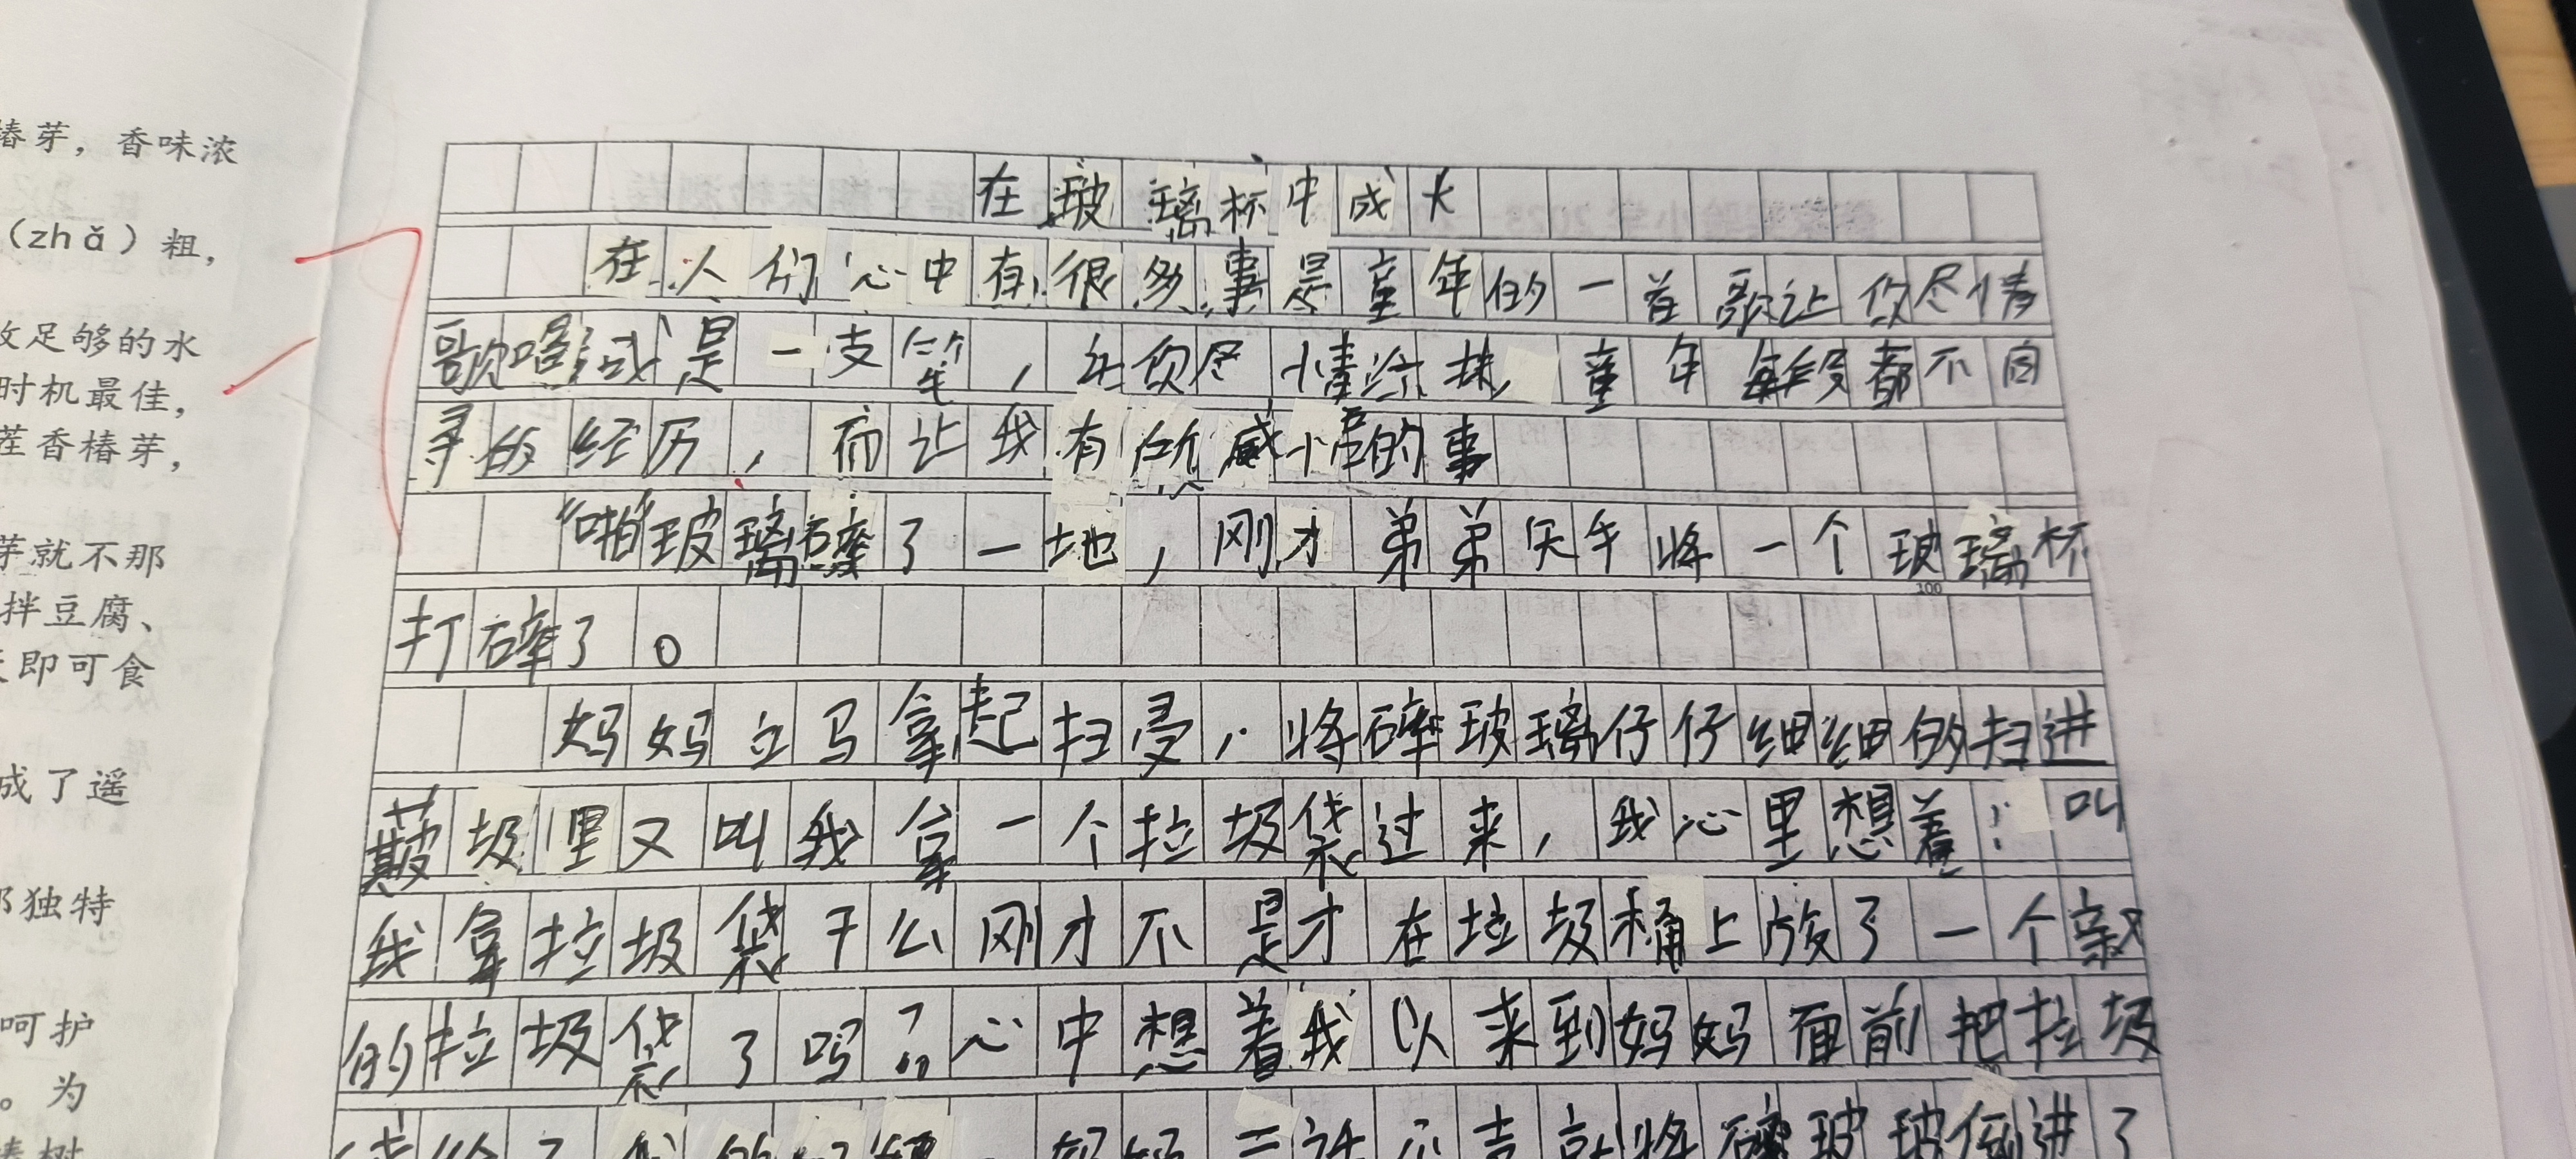 椿芽，香味浓
（zhǎ）粗，
足够的水
时机最佳，
茬香椿芽，
芽就不那
拌豆腐、
即可食
成了遥
独特
呵护
。为
椿树
在玻璃杯中成长
在人们心中有很多事是童年的一首歌让你尽情
歌唱；或是一支笔，让你尽情绘抹，童年每段都不同
寻的经历，而让我有所感悟的事
“啪”玻璃碎了一地，刚才弟弟失手将一个玻璃杯
打碎了。
妈妈立马拿起扫，将碎玻璃仔仔细细的扫进
圾里又叫我拿一个垃圾袋过来，我心里想着：叫
我拿垃圾袋干么刚才不是才在垃圾桶上放了一个新
的垃圾袋了吗？心中想着我以来到妈妈面前把垃圾
袋给了妈妈二话不言就将碎玻玻倒进了